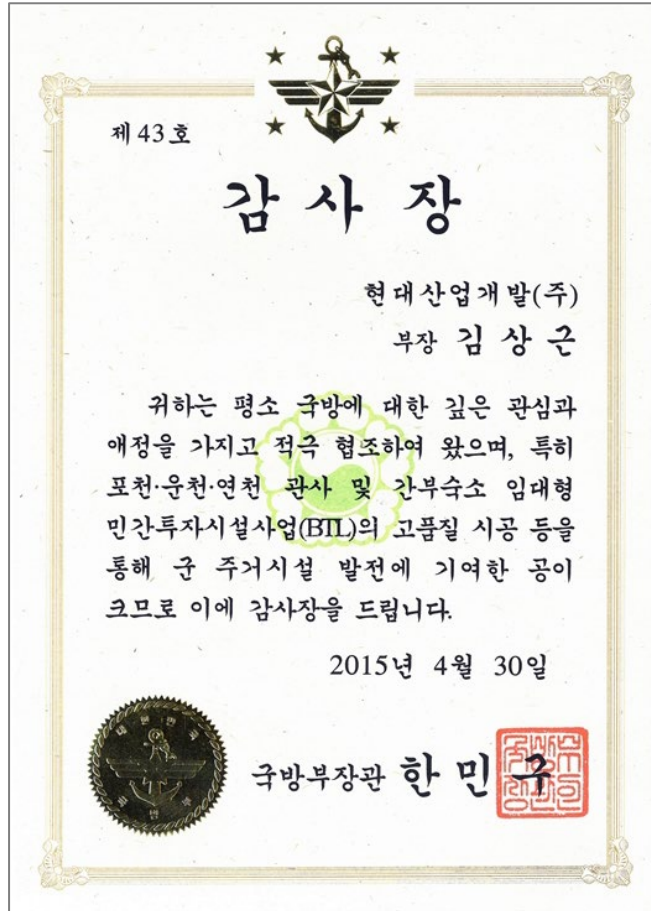 제 43 호
감 사 장
현대산업개발(주)
부장 김 상 근
귀하는 평소 국방에 대한 깊은 관심과
애정을 가지고 적극 협조하여 왔으며, 특히
포천·운천·연천 관사 및 간부숙소 임대형
민간투자시설사업(BTL)의 고품질 시공 등을
통해 군 주거시설 발전에 기여한 공이
크므로 이에 감사장을 드립니다.
2015년 4월 30일
대한민국
국방부장관 한 민 구